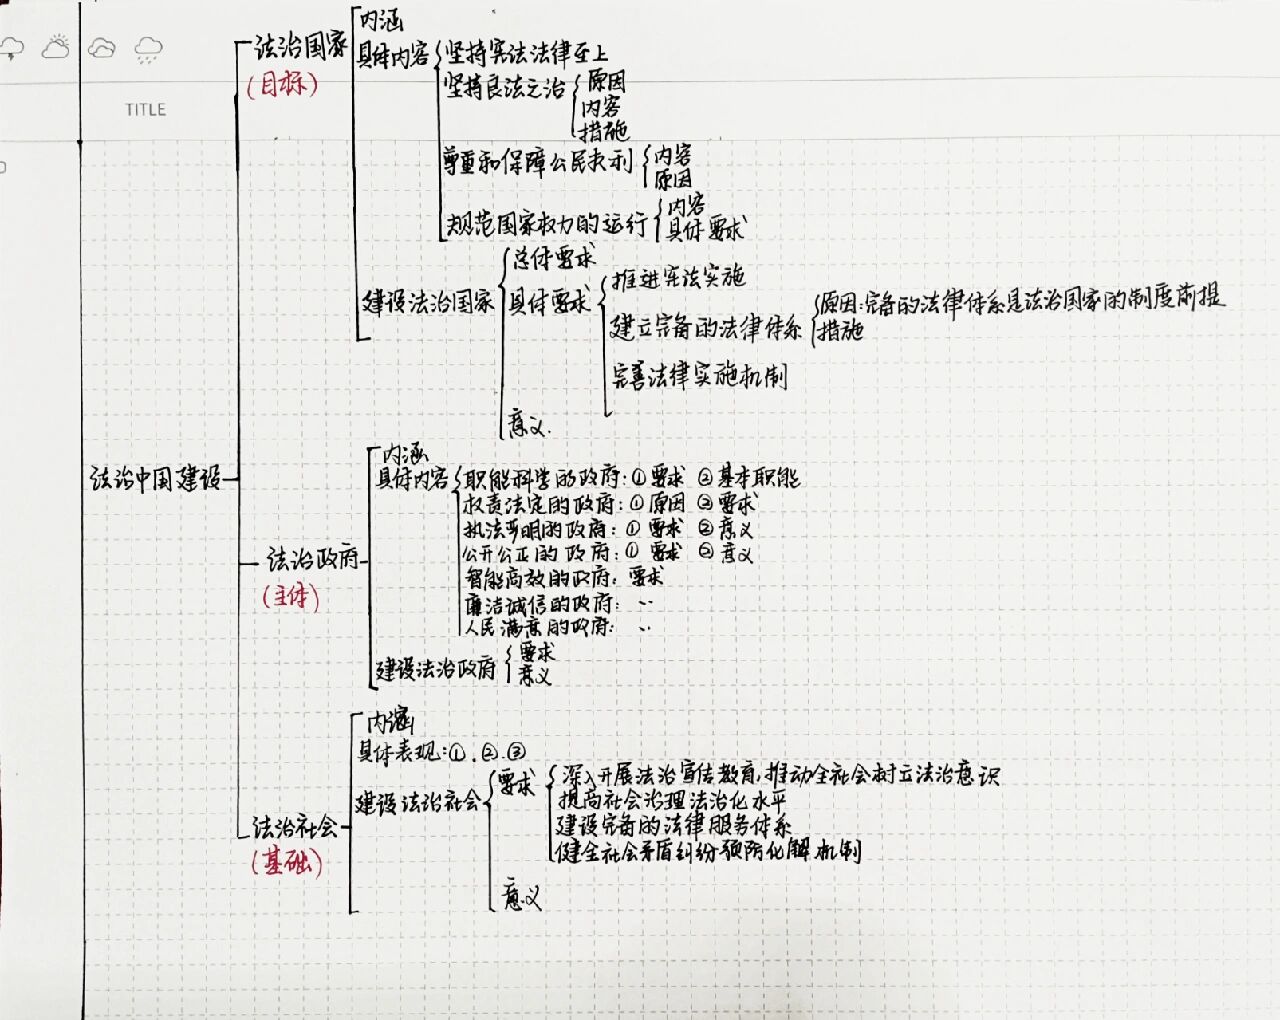 TITLE
法治中国建设
法治国家
(目标)
内涵
具体内容
坚持宪法法律至上
坚持良法之治
原因
内容
措施
尊重和保障公民权利
内容
原因
规范国家权力的运行
内容
具体要求
建设法治国家
总体要求
具体要求
推进宪法实施
建立完备的法律体系
原因:完备的法律体系是法治国家的制度前提
措施
完善法律实施机制
意义.
法治政府
(主体)
内涵
具体内容
职能科学的政府:① 要求 ②基本职能
权责法定的政府:① 原因 ②要求
执法严明的政府:① 要求 ②意义
公开公正的政府:① 要求 ②意义
智能高效的政府:要求
廉洁诚信的政府: 、、
人民满意的政府: 、、
建设法治政府
要求
意义
法治社会
(基础)
内涵
具体表现:①.②.③
建设法治社会
要求
深入开展法治宣传教育,推动全社会树立法治意识
提高社会治理法治化水平
建设完备的法律服务体系
健全社会矛盾纠纷预防化解机制
意义